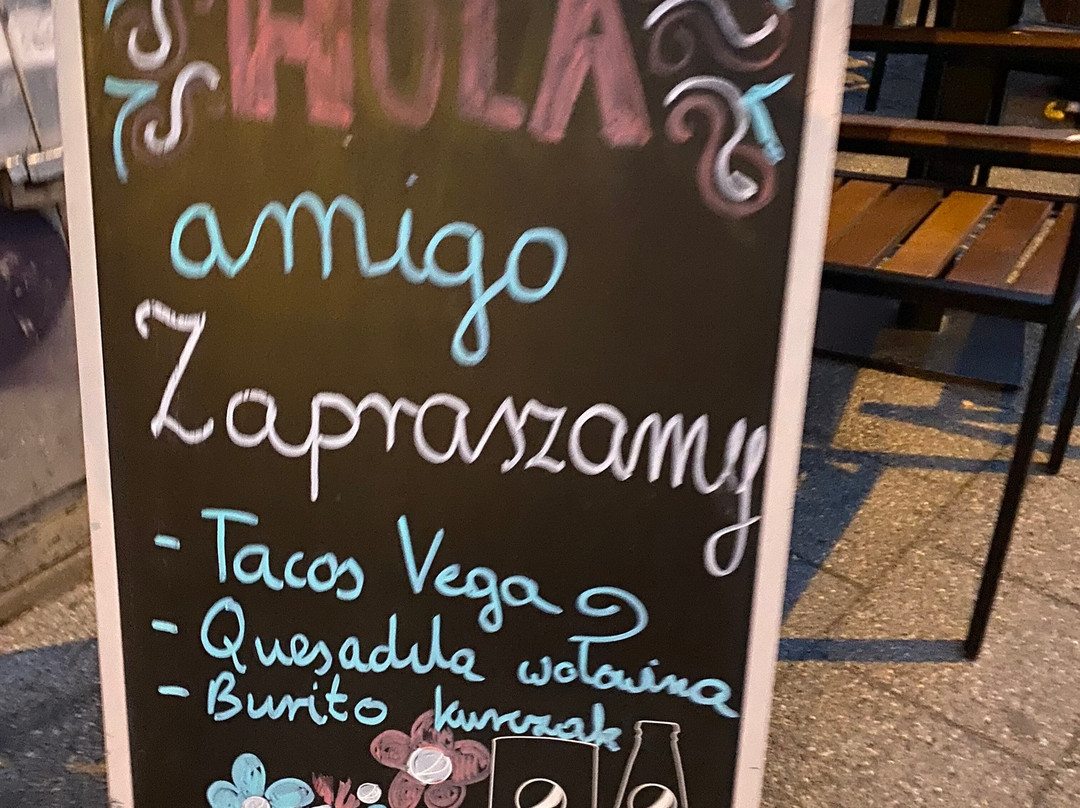 HOLA
amigo
Zapraszamy
- Tacos Vega
- Quesadilla wołowina
- Burito kurczak